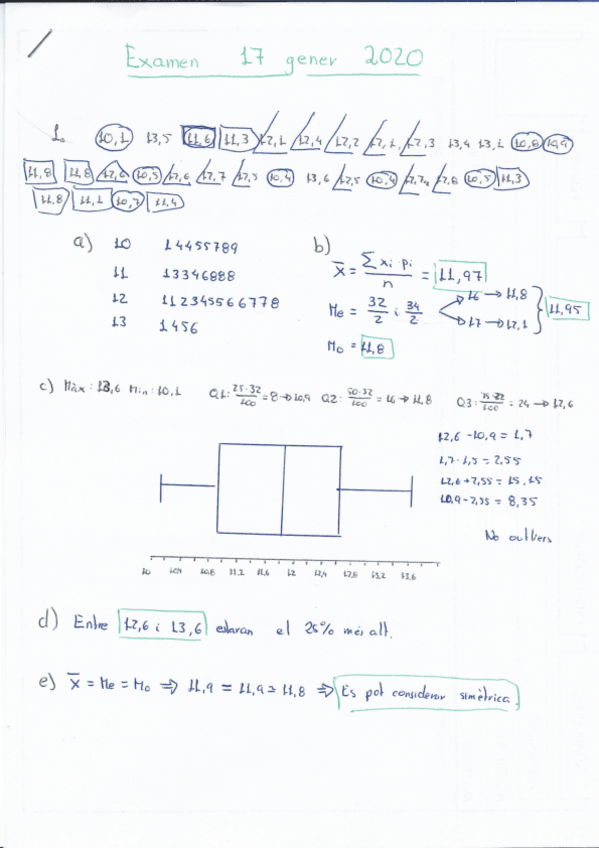 Examen 17 gener 2020
1. 10,1 13,5 11,6 11,3 12,1 12,4 12,2 12,1 12,3 13,4 13,1 10,8 10,9
11,8 11,8 12,6 10,5 12,6 12,7 12,5 10,4 13,6 12,5 10,4 12,7 12,8 10,5 11,3
11,8 11,1 10,7 11,4
a) 10 14455789
11 13346888
12 112345566778
13 1456
b)
x̄ = Σ xi · pi / n = 11,97
Me = 32/2 i 34/2
16 → 11,8
17 → 12,1
11,95
Mo = 11,8
c) Màx: 13,6 Min: 10,1 Q1: 25·32/100 = 8 → 10,9 Q2: 50·32/100 = 16 → 11,8 Q3: 75·32/100 = 24 → 12,6
12,6 - 10,9 = 1,7
1,7 · 1,5 = 2,55
12,6 + 2,55 = 15,15
10,9 - 2,55 = 8,35
No outliers
10 10,4 10,8 11,2 11,6 12 12,4 12,8 13,2 13,6
d) Entre 12,6 i 13,6 estaran el 25% més alt.
e) x̄ = Me = Mo ⇒ 11,9 = 11,9 = 11,8 ⇒ Es pot considerar simètrica.